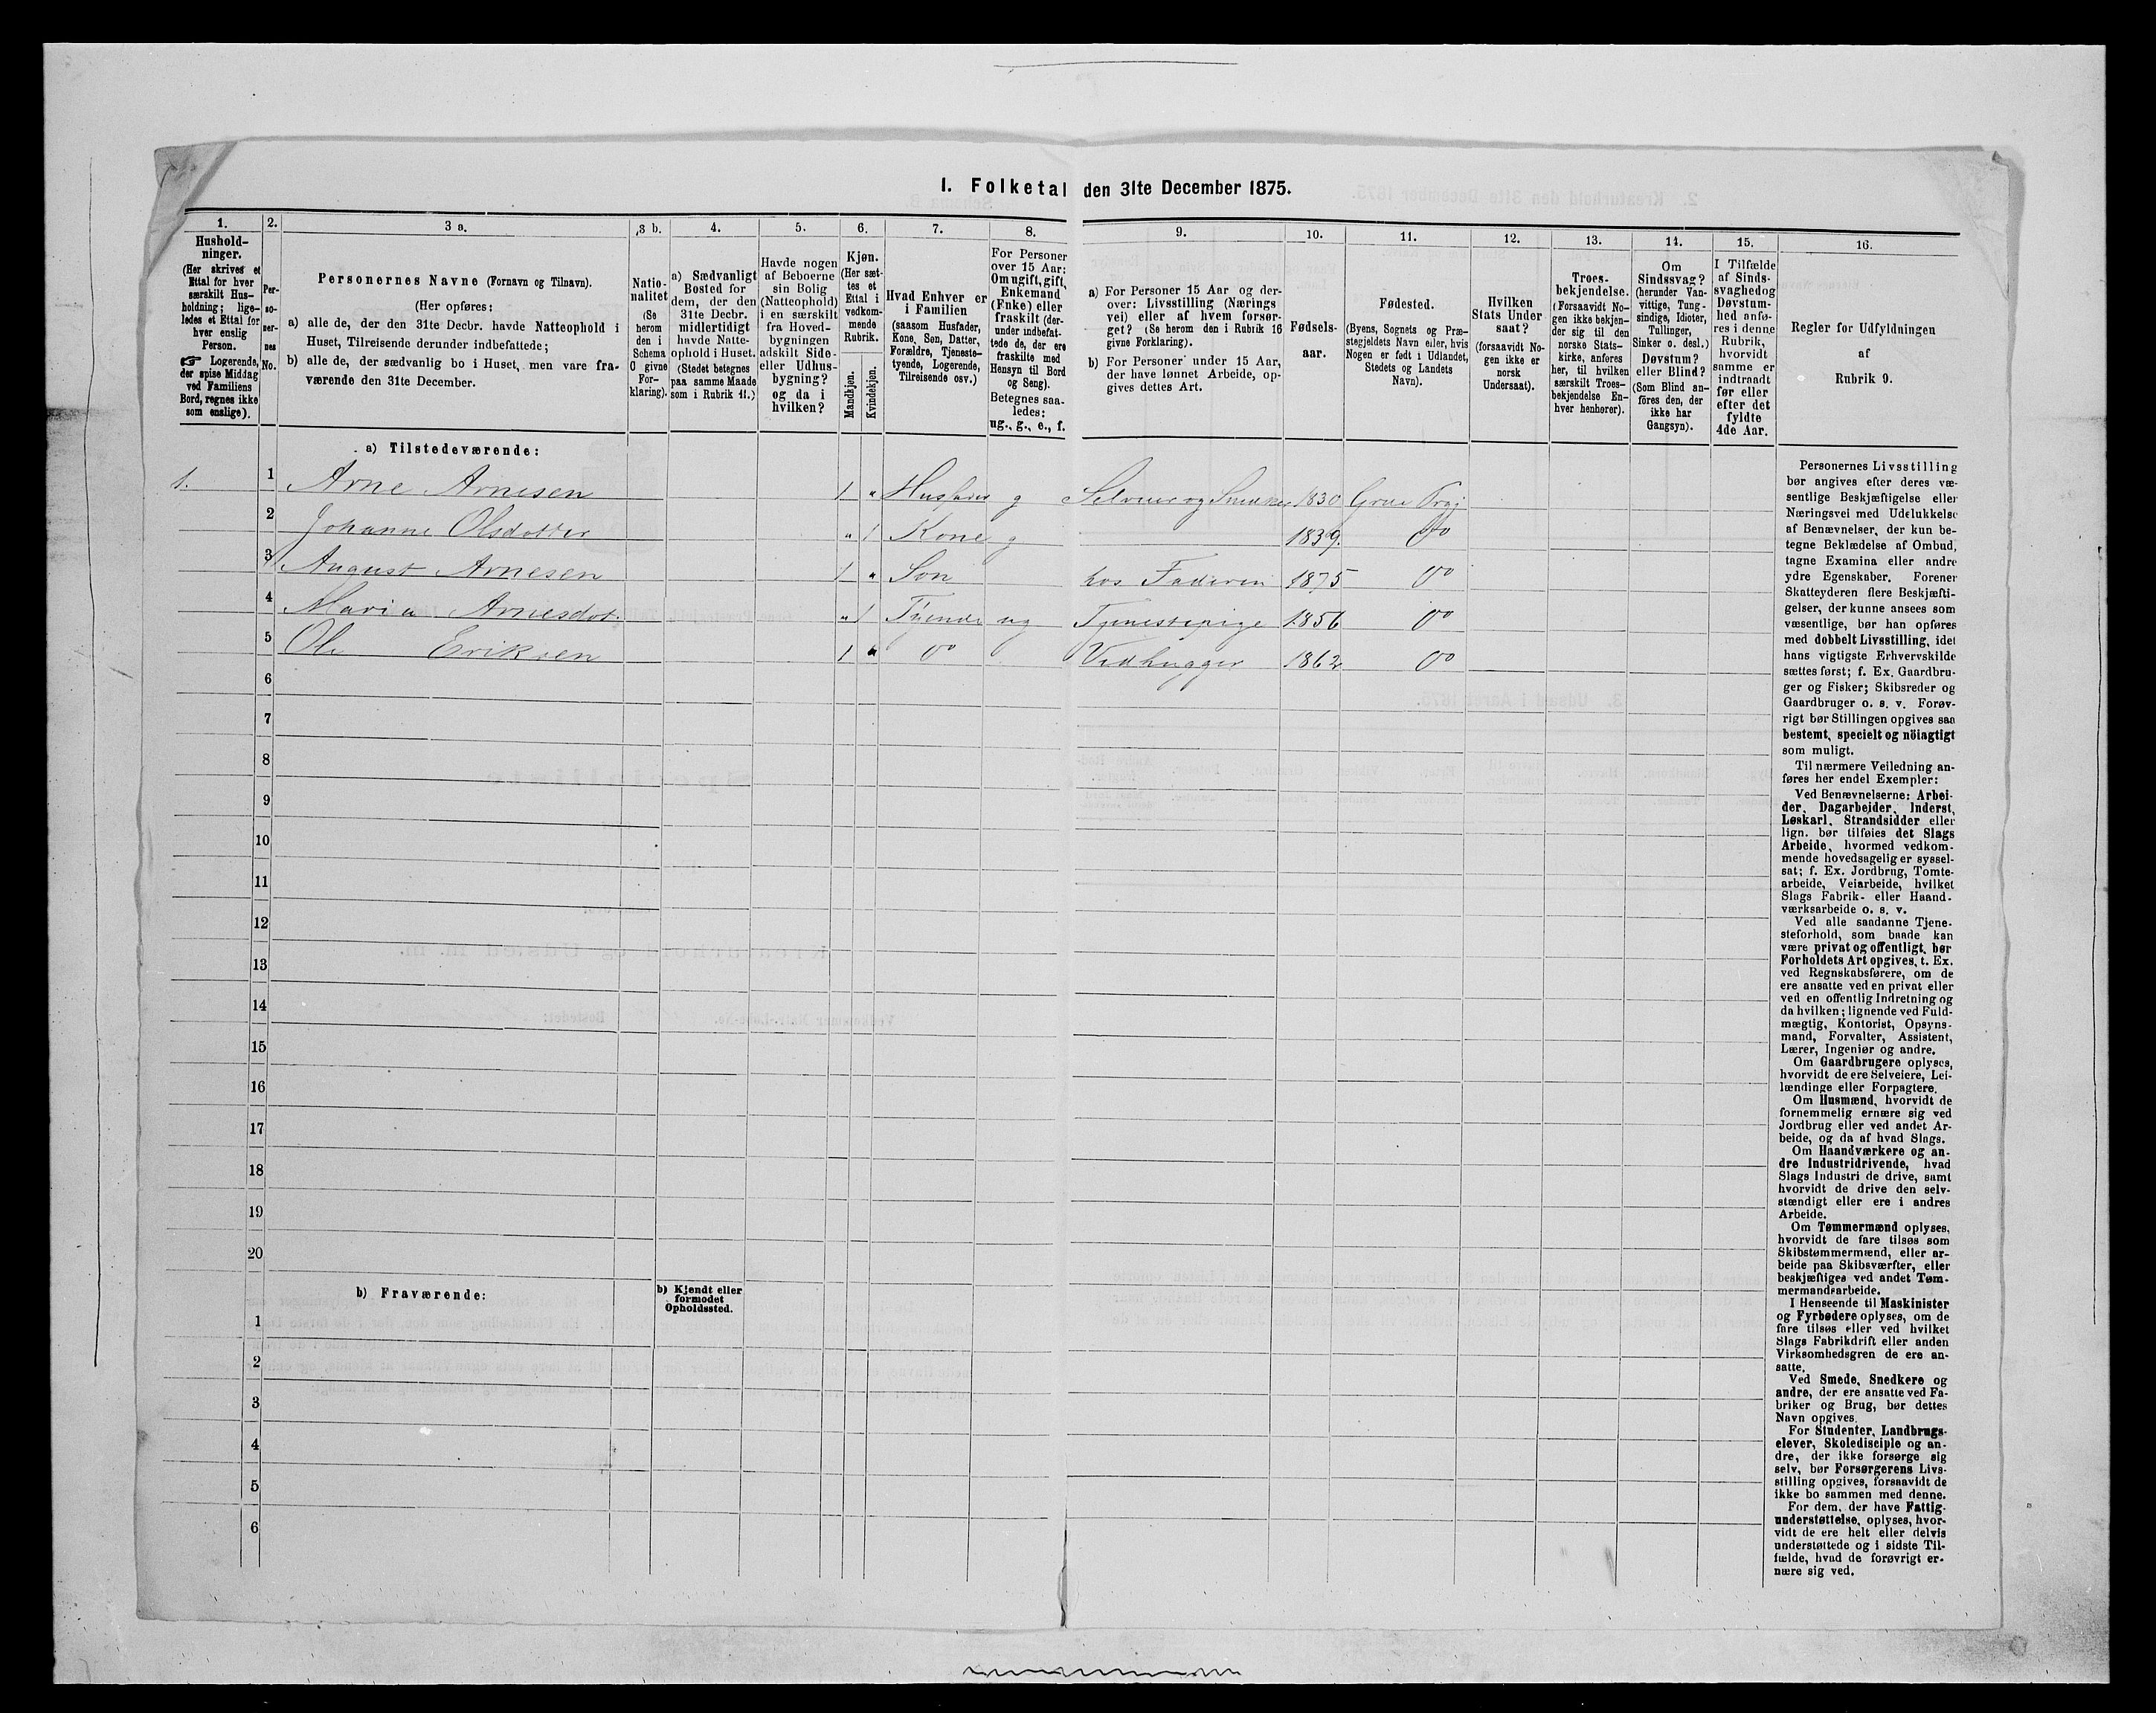 I. Folketal den 31te December 1875.
1.
Hushold-
ninger.
(Her skrives et
Ettal for hver
særskilt Hus-
holdning; lige-
ledes et Ettal for
hver enslig
Person.
☞ Logerende,
der spise Middag
ved Familiens
Bord, regnes ikke
som enslige).
2.
Per-
so-
ner-
nes
No.
3 a.
Personernes Navne (Fornavn og Tilnavn).
(Her opføres:
a) alle de, der den 31te Decbr. havde Natteophold i
Huset, Tilreisende derunder indbefattede;
b) alle de, der sædvanlig bo i Huset, men vare fra-
værende den 31te December.
3 b.
Natio-
nalitet
(Se
herom
den i
Schema
C givne
For-
klaring).
4.
a) Sædvanligt
Bosted for
dem, der den
31te Decbr.
midlertidigt
havde Natte-
ophold i Huset.
(Stedet betegnes
paa samme Maade
som i Rubrik 11.)
5.
Havde nogen
af Beboerne
sin Bolig
(Natteophold)
i en særskilt
fra Hoved-
bygningen
adskilt Side-
eller Udhus-
bygning?
og da i
hvilken?
6.
Kjøn.
(Her sæt-
tes et
Ettal i
vedkom-
mende
Rubrik.
Mandkjøn.
Kvindekjøn.
7.
Hvad Enhver er
i Familien
(saasom Husfader,
Kone, Søn, Datter,
Forældre, Tjeneste-
tyende, Logerende,
Tilreisende osv.)
8.
For Personer
over 15 Aar:
Om ugift, gift,
Enkemand
(Enke) eller
fraskilt (der-
under indbefat-
tede de, der ere
fraskilte med
Hensyn til Bord
og Seng).
Betegnes saa-
ledes:
ug., g., e., f.
9.
a) For Personer 15 Aar og der-
over: Livsstilling (Nærings
vei) eller af hvem forsør-
get? (Se herom den i Rubrik 16
givne Forklaring).
b) For Personer under 15 Aar,
der have lønnet Arbeide, op-
gives dettes Art.
10.
Fødsels-
aar.
11.
Fødested.
(Byens, Sognets og Præ-
stegjeldets Navn eller, hvis
Nogen er født i Udlandet,
Stedets og Landets
Navn).
12.
Hvilken
Stats Under
saat?
(forsaavidt No-
gen ikke er
norsk
Undersaat).
13.
Troes-
bekjendelse.
(Forsaavidt No-
gen ikke bekjen-
der sig til den
norske Stats-
kirke, anføres
her, til hvilken
særskilt Troes-
bekjendelse En-
hver henhører).
14.
Om
Sindssvag?
(herunder Van-
vittige, Tung-
sindige, Idioter,
Tullinger,
Sinker o. desl.)
Døvstum?
eller Blind?
(Som Blind an-
føres den, der
ikke har
Gangsyn).
15.
I Tilfælde
af Sinds-
svaghed og
Døvstum-
hed anfø-
res i denne
Rubrik,
hvorvidt
samme er
indtraadt
før eller
efter det
fyldte
4de Aar.
16.
Regler for Udfyldningen
af
Rubrik 9.
a) Tilstedeværende:
1. 1 Arne Arnesen 1 " Husfader g Selveier og Snedker 1830 Grue Prgj
2 Johanne Olsdotter " 1 Kone g 1839. Do
3 August Arnesen 1 " Søn hos Faderen 1875 Do
4 Maria Arnesdot. " 1 Tjende ug Tjenestepige 1856 Do
5 Ole Eriksen 1 " Do Vedhugger 1862 Do
6
7
8
9
10
11
12
13
14
15
16
17
18
19
20
b) Fraværende:
b) Kjendt eller
formodet
Opholdssted.
1
2
3
4
5
6
Personernes Livsstilling
bør angives efter deres væ-
sentlige Beskjæftigelse eller
Næringsvei med Udelukkelse
af Benævnelser, der kun be-
tegne Beklædelse af Ombud,
tagne Examina eller andre
ydre Egenskaber. Forener
Skatteyderen flere Beskjæfti-
gelser, der kunne ansees som
væsentlige, bør han opføres
med dobbelt Livsstilling, idet
hans vigtigste Erhvervskilde
sættes først; f. Ex. Gaardbru-
ger og Fisker; Skibsreder og
Gaardbruger o. s. v. Forøv-
rigt bør Stillingen opgives saa
bestemt, specielt og nöiagtigt
som muligt.
Til nærmere Veiledning an-
føres her endel Exempler:
Ved Benævnelserne: Arbei-
der, Dagarbeider, Inderst,
Løskarl, Strandsidder eller
lign. bør tilføies det Slags
Arbeide, hvormed vedkom-
mende hovedsagelig er syssel-
sat; f. Ex. Jordbrug, Tomte-
arbeide, Veiarbeide, hvilket
Slags Fabrik- eller Haand-
værksarbeide o. s. v.
Ved alle saadanne Tjene-
steforhold, som baade kan
være privat og offentligt, bør
Forholdets Art opgives, t. Ex.
ved Regnskabsførere, om de
ere ansatte ved en privat eller
ved en offentlig Indretning og
da hvilken; lignende ved Fuld-
mægtig, Kontorist, Opsyns-
mand, Forvalter, Assistent,
Lærer, Ingeniør og andre.
Om Gaardbrugere oplyses,
hvorvidt de ere Selveiere, Lei-
lændinge eller Forpagtere.
Om Husmænd, hvorvidt de
fornemmelig ernære sig ved
Jordbrug eller ved andet Ar-
beide, og da af hvad Slags.
Om Haandværkere og an-
dre Industridrivende, hvad
Slags Industri de drive, samt
hvorvidt de drive den selv-
stændigt eller ere i andres
Arbeide.
Om Tømmermænd oplyses,
hvorvidt de fare tilsøs som
Skibstømmermænd, eller ar-
beide paa Skibsværfter, eller
beskjæftiges ved andet Tøm-
mermandsarbeide.
I Henseende til Maskinister
og Fyrbødere oplyses, om de
fare tilsøs eller ved hvilket
Slags Fabrikdrift eller anden
Virksomhedsgren de ere an-
satte.
Ved Smede, Snedkere og
andre, der ere ansatte ved Fa-
briker og Brug, bør dettes
Navn opgives.
For Studenter, Landbrugs-
elever, Skoledisciple og an-
dre, der ikke forsørge sig
selv, bør Forsørgerens Livs-
stilling opgives, forsaavidt de
ikke bo sammen med denne.
For dem, der have Fattig-
understøttelse, oplyses, hvor-
vidt de ere helt eller delvis
understøttede og i sidste Til-
fælde, hvad de forøvrigt er-
nære sig ved.